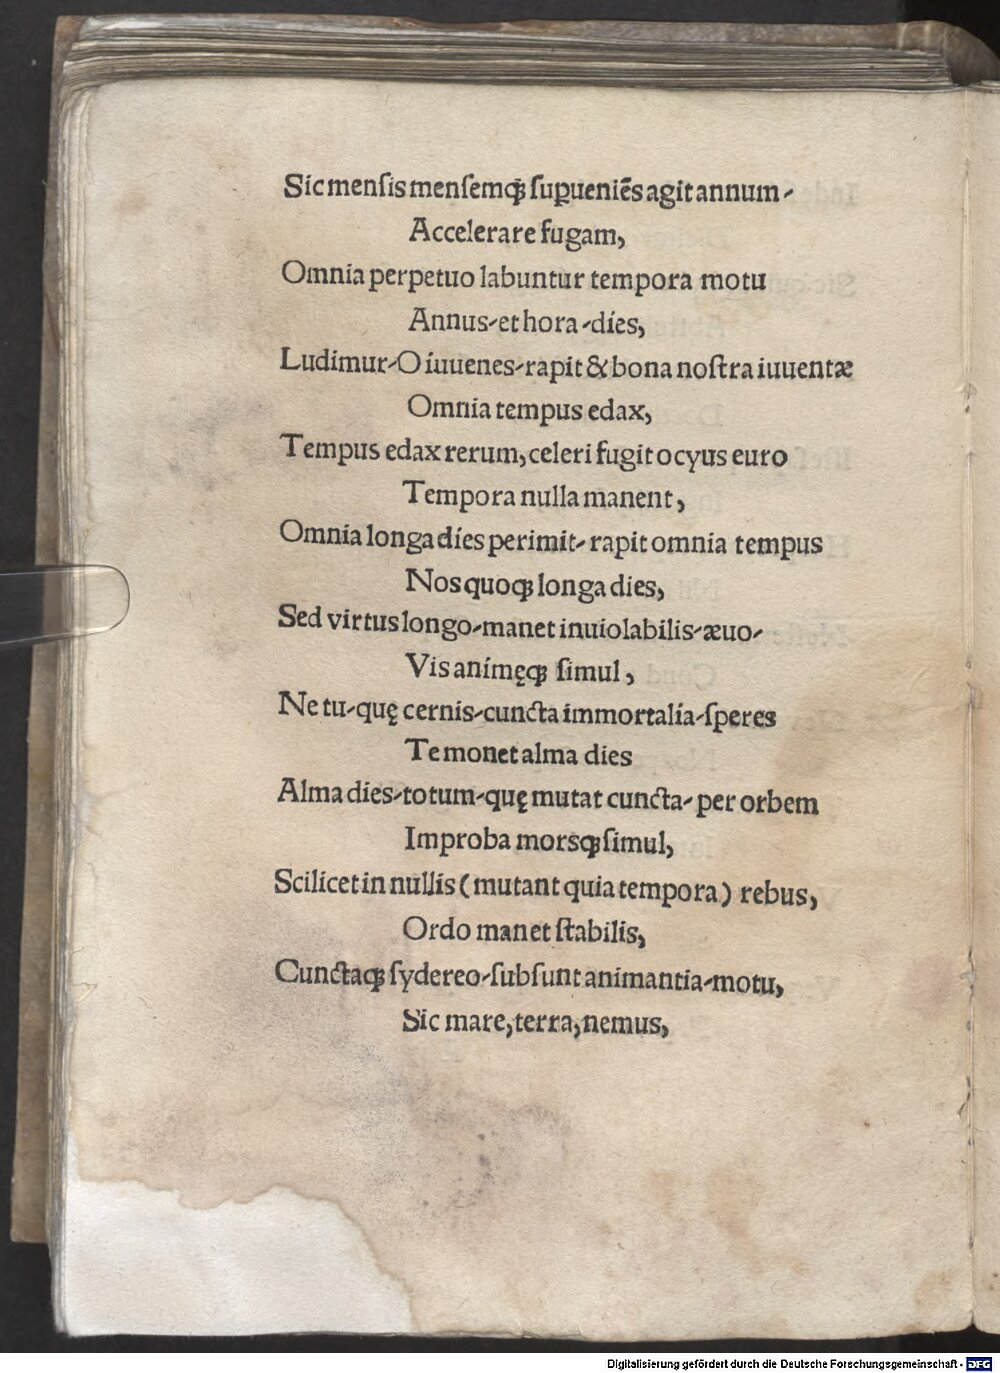 Sic menſis menſemqꝫ ſuꝑueniẽs agit annum-
Accelerare fugam,
Omnia perpetuo labuntur tempora motu
Annus-et hora-dies,
Ludimur-O iuuenes-rapit & bona noſtra iuuentæ
Omnia tempus edax,
Tempus edax rerum, celeri fugit ocyus euro
Tempora nulla manent,
Omnia longa dies perimit-rapit omnia tempus
Nos quoqꝫ longa dies,
Sed virtus longo-manet inuiolabilis-æuo-
Vis animęqꝫ simul,
Ne tu-quę cernis-cuncta immortalia-ſperes
Te monet alma dies
Alma dies-totum-quę mutat cuncta-per orbem
Improba morsqꝫ ſimul,
Scilicet in nullis (mutant quia tempora) rebus,
Ordo manet ſtabilis,
Cunctaqꝫ ſydereo-ſubſunt animantia-motu,
Sic mare, terra, nemus,
Digitalisierung gefördert durch die Deutsche Forschungsgemeinschaft - DFG